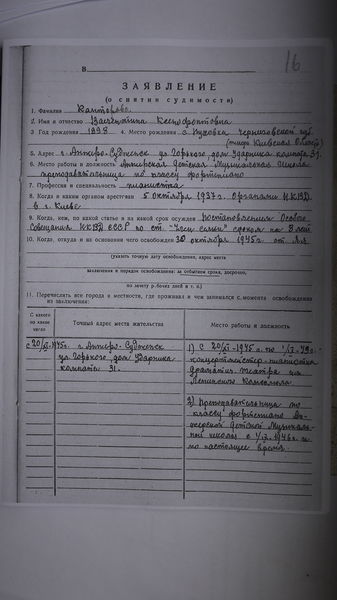 16
В
ЗАЯВЛЕНИЕ
(о снятии судимости)
1. Фамилия Канторова
2. Имя и отчество Валентина Ксенофонтовна
3 Год рождения 1908 4. Место рождения с. Пуховка Черниговской губ.
(теперь Киевская область)
5. Адрес г. Анжеро-Судженск ул Горького, дом Ударника комната 31.
6. Место работы и должность Анжерская Детская Музыкальная школа
преподавательница по классу фортепиано
7. Профессия и специальность пианистка
8. Когда и каким органом арестован 5 октября 1937г. Органами НКВД
в г. Киеве
9. Когда, кем, по какой статье и на какой срок осужден постановлением Особого
Совещания НКВД СССР по ст. "член семьи" сроком на 8 лет
10. Когда, откуда и на основании чего освобожден 30 октября 1945г. от
(указать точную дату освобождения, адрес места
заключения и порядок освобождения: за отбытием срока, досрочно,
по зачету р. бочих дней и т. п.)
11. Перечислить все города и местности, где проживал и чем занимался с момента освобождения
из заключения:
С какого по какое число
Точный адрес места жительства
Место работы и должность
с 20/XI-1945г. г. Анжеро-Судженск
ул Горького дом Ударника
комната 31.
1) С 20/XI-1945г. по
концертмейстер-пианистка
драматич. театра им
Ленинского Комсомола.
2) Преподавательница по
классу фортепиано Ан-
жерской Детской Музыкаль-
ной школы с 1946г. и
по настоящее время.